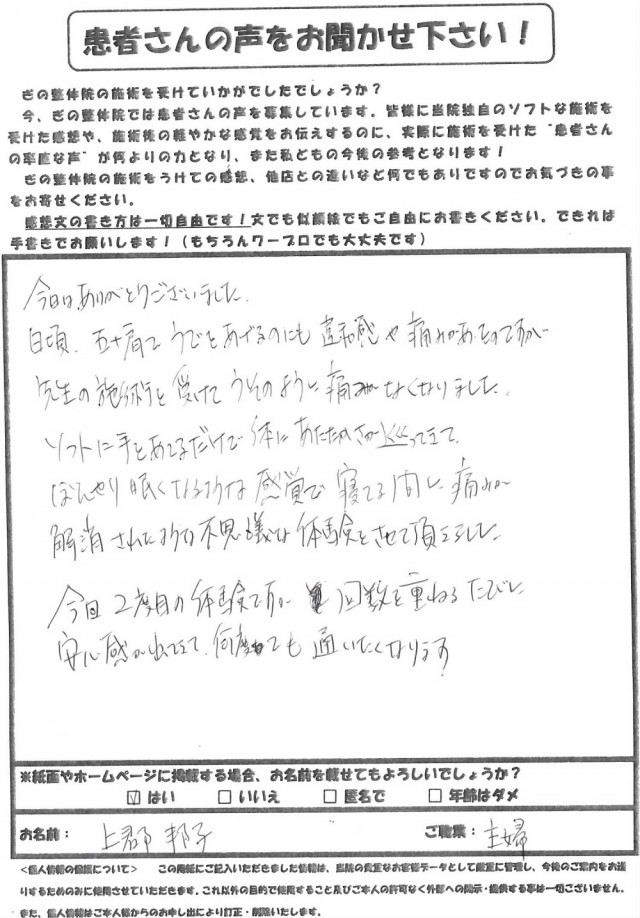 患者さんの声をお聞かせ下さい！
ぎの整体院の施術を受けていかがでしたでしょうか？
今、ぎの整体院では患者さんの声を募集しています。皆様に当院独自のソフトな施術を
受けた感想や、施術後の軽やかな感覚をお伝えするのに、実際に施術を受けた"患者さん
の率直な声"が何よりの力となり、また私どもの今後の参考となります！
ぎの整体院の施術をうけての感想、他店との違いなど何でもありですのでお気づきの事
をお寄せください。
感想文の書き方は一切自由です！文でも似顔絵でもご自由にお書きください。できれば
手書きでお願いします！（もちろんワープロでも大丈夫です）
今日はありがとうございました。
日頃、五十肩でうでをあげるのにも違和感や痛みがあるのですが
先生の施術を受けてうそのように痛みがなくなりました。
ソフトに手をあてるだけで体にあたたかさが巡ってきて、
ぼんやり眠くなるような感覚で寝てる間に痛みが
解消されたような不思議な体験をさせて頂きました。
今回2度目の体験ですが 回数を重ねるたびに
安心感が出てきて、何度でも通いたくなります
※紙面やホームページに掲載する場合、お名前を載せてもよろしいでしょうか？
☑ はい □ いいえ □ 匿名で □ 年齢はダメ
お名前： 上郡 邦子 ご職業： 主婦
<個人情報の保護について> この用紙にご記入いただきました情報は、当院の貴重なお客様データとして厳重に管理し、今後のご案内をお送
りするためのみに使用させていただきます。これ以外の目的で使用すること及びご本人の許可なく外部への開示・提供する事は一切ございません。
また、個人情報はご本人様からのお申し出により訂正・削除いたします。